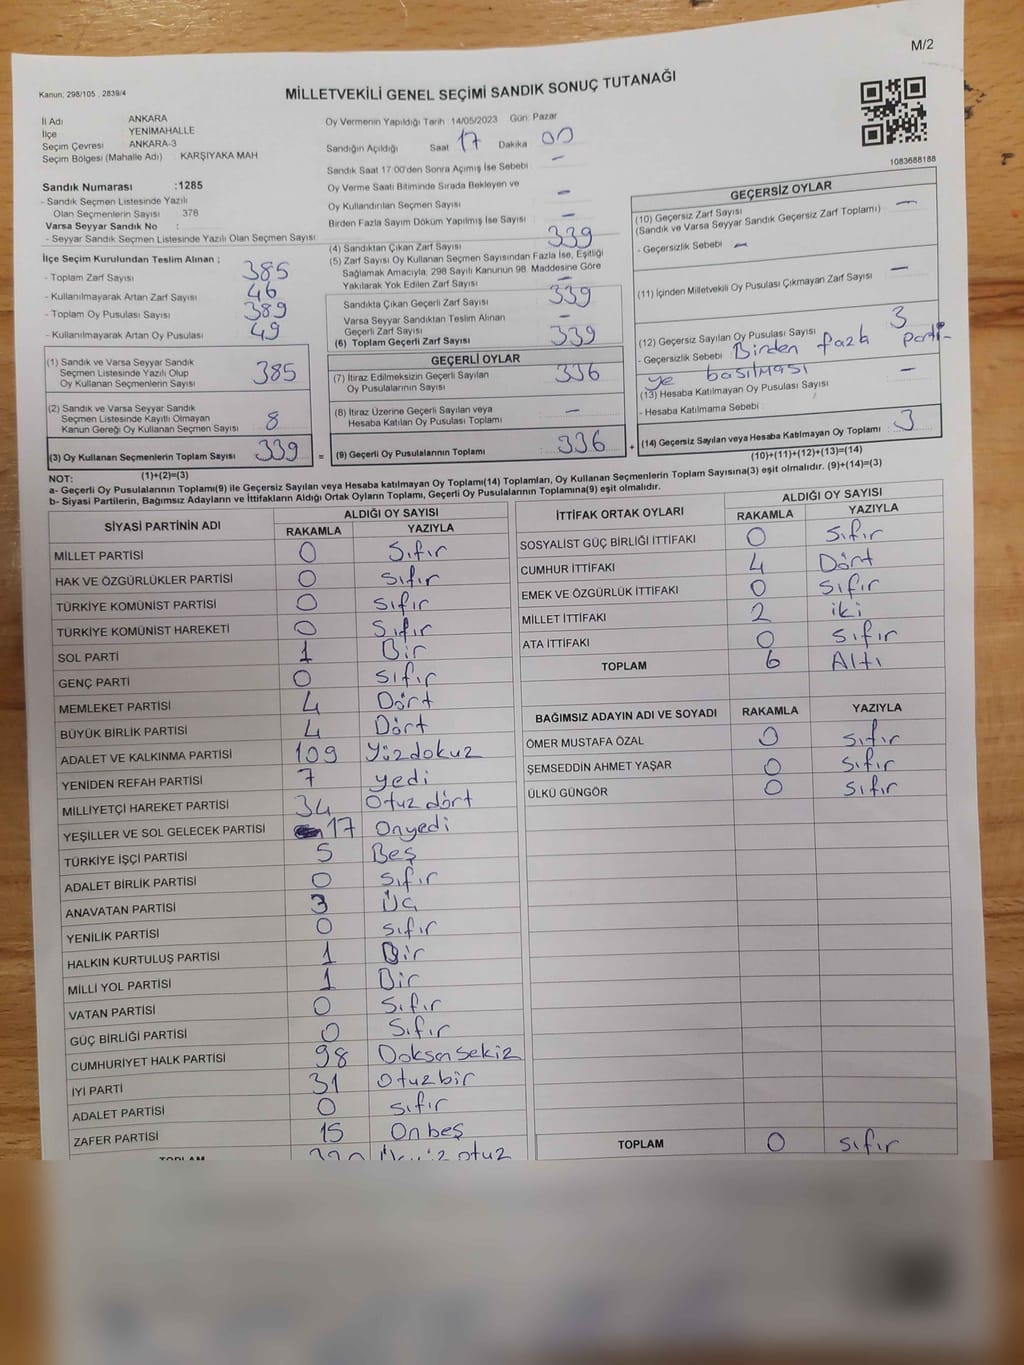 M/2
Kanun; 298/105 , 2839/4
MİLLETVEKİLİ GENEL SEÇİMİ SANDIK SONUÇ TUTANAĞI
İl Adı ANKARA
İlçe YENİMAHALLE
Seçim Çevresi ANKARA-3
Seçim Bölgesi (Mahalle Adı) KARŞIYAKA MAH
Sandık Numarası :1285
- Sandık Seçmen Listesinde Yazılı
Olan Seçmenlerin Sayısı 378
Varsa Seyyar Sandık No :
- Seyyar Sandık Seçmen Listesinde Yazılı Olan Seçmen Sayısı
İlçe Seçim Kurulundan Teslim Alınan ;
- Toplam Zarf Sayısı 385
- Kullanılmayarak Artan Zarf Sayısı 46
- Toplam Oy Pusulası Sayısı 389
- Kullanılmayarak Artan Oy Pusulası 49
(1) Sandık ve Varsa Seyyar Sandık
Seçmen Listesinde Yazılı Olup
Oy Kullanan Seçmenlerin Sayısı 385
(2) Sandık ve Varsa Seyyar Sandık
Seçmen Listesinde Kayıtlı Olmayan
Kanun Gereği Oy Kullanan Seçmen Sayısı 8
(3) Oy Kullanan Seçmenlerin Toplam Sayısı 339 =
(1)+(2)=(3)
Oy Vermenin Yapıldığı Tarih :14/05/2023 Gün: Pazar
Sandığın Açıldığı Saat 17 Dakika 00
Sandık Saat 17:00'den Sonra Açımış İse Sebebi –
Oy Verme Saati Bitiminde Sırada Bekleyen ve
Oy Kullandırılan Seçmen Sayısı –
Birden Fazla Sayım Döküm Yapılmış İse Sayısı –
(4) Sandıktan Çıkan Zarf Sayısı 339
(5) Zarf Sayısı Oy Kullanan Seçmen Sayısından Fazla İse, Eşitliği
Sağlamak Amacıyla; 298 Sayılı Kanunun 98. Maddesine Göre
Yakılarak Yok Edilen Zarf Sayısı –
Sandıkta Çıkan Geçerli Zarf Sayısı 339
Varsa Seyyar Sandıktan Teslim Alınan
Geçerli Zarf Sayısı –
(6) Toplam Geçerli Zarf Sayısı 339
GEÇERLİ OYLAR
(7) İtiraz Edilmeksizin Geçerli Sayılan
Oy Pusulalarının Sayısı 336
(8) İtiraz Üzerine Geçerli Sayılan veya
Hesaba Katılan Oy Pusulası Toplamı –
(9) Geçerli Oy Pusulalarının Toplamı 336 +
1083688188
GEÇERSİZ OYLAR
(10) Geçersiz Zarf Sayısı
(Sandık ve Varsa Seyyar Sandık Geçersiz Zarf Toplamı) –
- Geçersizlik Sebebi –
(11) İçinden Milletvekili Oy Pusulası Çıkmayan Zarf Sayısı –
(12) Geçersiz Sayılan Oy Pusulası Sayısı 3
- Geçersizlik Sebebi Birden fazla parti-
ye basılması
(13) Hesaba Katılmayan Oy Pusulası Sayısı –
- Hesaba Katılmama Sebebi :
(14) Geçersiz Sayılan veya Hesaba Katılmayan Oy Toplamı 3
(10)+(11)+(12)+(13)=(14)
NOT:
a- Geçerli Oy Pusulalarının Toplamı(9) ile Geçersiz Sayılan veya Hesaba Katılmayan Oy Toplamı(14) Toplamları, Oy Kullanan Seçmenlerin Toplam Sayısına(3) eşit olmalıdır. (9)+(14)=(3)
b- Siyasi Partilerin, Bağımsız Adayların ve İttifakların Aldığı Ortak Oyların Toplamı, Geçerli Oy Pusulalarının Toplamına(9) eşit olmalıdır.
SİYASİ PARTİNİN ADI ALDIĞI OY SAYISI
RAKAMLA YAZIYLA
MİLLET PARTİSİ 0 Sıfır
HAK VE ÖZGÜRLÜKLER PARTİSİ 0 sıfır
TÜRKİYE KOMÜNİST PARTİSİ 0 sıfır
TÜRKİYE KOMÜNİST HAREKETİ 0 Sıfır
SOL PARTİ 1 Bir
GENÇ PARTİ 0 sıfır
MEMLEKET PARTİSİ 4 Dört
BÜYÜK BİRLİK PARTİSİ 4 Dört
ADALET VE KALKINMA PARTİSİ 109 Yüzdokuz
YENİDEN REFAH PARTİSİ 7 yedi
MİLLİYETÇİ HAREKET PARTİSİ 34 Otuz dört
YEŞİLLER VE SOL GELECEK PARTİSİ 17 Onyedi
TÜRKİYE İŞÇİ PARTİSİ 5 Beş
ADALET BİRLİK PARTİSİ 0 sıfır
ANAVATAN PARTİSİ 3 Üç
YENİLİK PARTİSİ 0 sıfır
HALKIN KURTULUŞ PARTİSİ 1 Bir
MİLLİ YOL PARTİSİ 1 Bir
VATAN PARTİSİ 0 Sıfır
GÜÇ BİRLİĞİ PARTİSİ 0 Sıfır
CUMHURİYET HALK PARTİSİ 98 Doksan sekiz
İYİ PARTİ 31 Otuzbir
ADALET PARTİSİ 0 sıfır
ZAFER PARTİSİ 15 Onbeş
TOPLAM 330 Üçyüz otuz
İTTİFAK ORTAK OYLARI ALDIĞI OY SAYISI
RAKAMLA YAZIYLA
SOSYALİST GÜÇ BİRLİĞİ İTTİFAKI 0 Sıfır
CUMHUR İTTİFAKI 4 Dört
EMEK VE ÖZGÜRLÜK İTTİFAKI 0 sıfır
MİLLET İTTİFAKI 2 iki
ATA İTTİFAKI 0 sıfır
TOPLAM 6 Altı
BAĞIMSIZ ADAYIN ADI VE SOYADI RAKAMLA YAZIYLA
ÖMER MUSTAFA ÖZAL 0 sıfır
ŞEMSEDDİN AHMET YAŞAR 0 sıfır
ÜLKÜ GÜNGÖR 0 sıfır
TOPLAM 0 sıfır